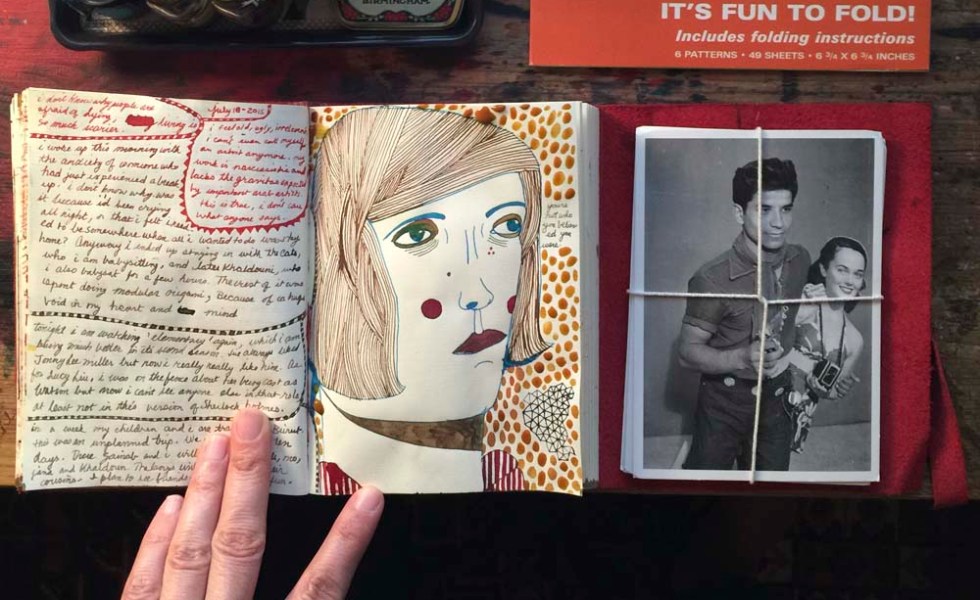 BIRMINGHAM.
IT'S FUN TO FOLD!
Includes folding instructions
6 PATTERNS • 49 SHEETS • 6 3/4 X 6 3/4 INCHES
i don't know why people are
afraid of dying,
so much scarier.
July 18-2015
i feel old, ugly, irrelevant
i can't even call myself
an artist anymore. my
work is narcissistic and
lacks the gravitas expected
by important arab artists.
this is true, i don't care
what anyone says.
i woke up this morning with
the anxiety of someone who
had just experienced a break
up. i don't know why was
it because i'd been crying
all night, or that i felt
ed to be somewhere when all i wanted to do was by
home? Anyway i ended up staying in with the cats,
who i am babysitting, and Khaldouni, who
i also babysat for a few hours. The rest of it was
spent doing modular origami, because of a huge
void in my heart and mind
tonight i am watching 'elementary' again, which i am
liking much better in its second season. i've always liked
Jonny lee miller but now i really really like him. As
for lucy liu, i was on the fence about her being cast as
Watson but now i can't see anyone else in that role,
at least not in this version of Sherlock holmes.
in a week my children and i are
this is an unplanned trip. We
days. There and i will me,
and Khaldoun
cousins. i plan to see friends
you're
not who
you believ
ed you
were.